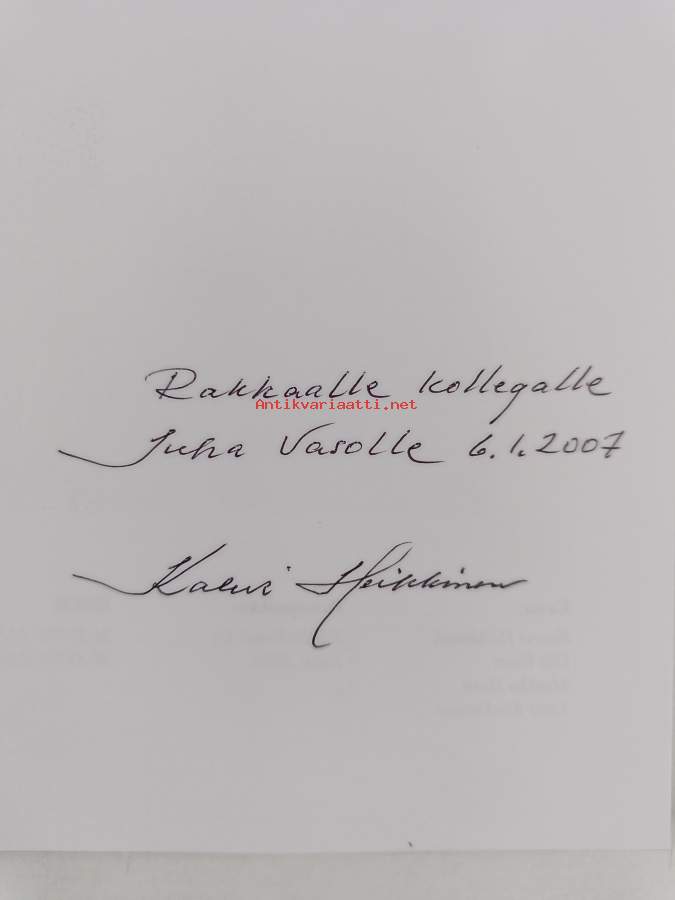 Rakkaalle kollegalle
Antikvariaatti.net
Juha Vasolle 6.1.2007
Kalevi Heikkinen